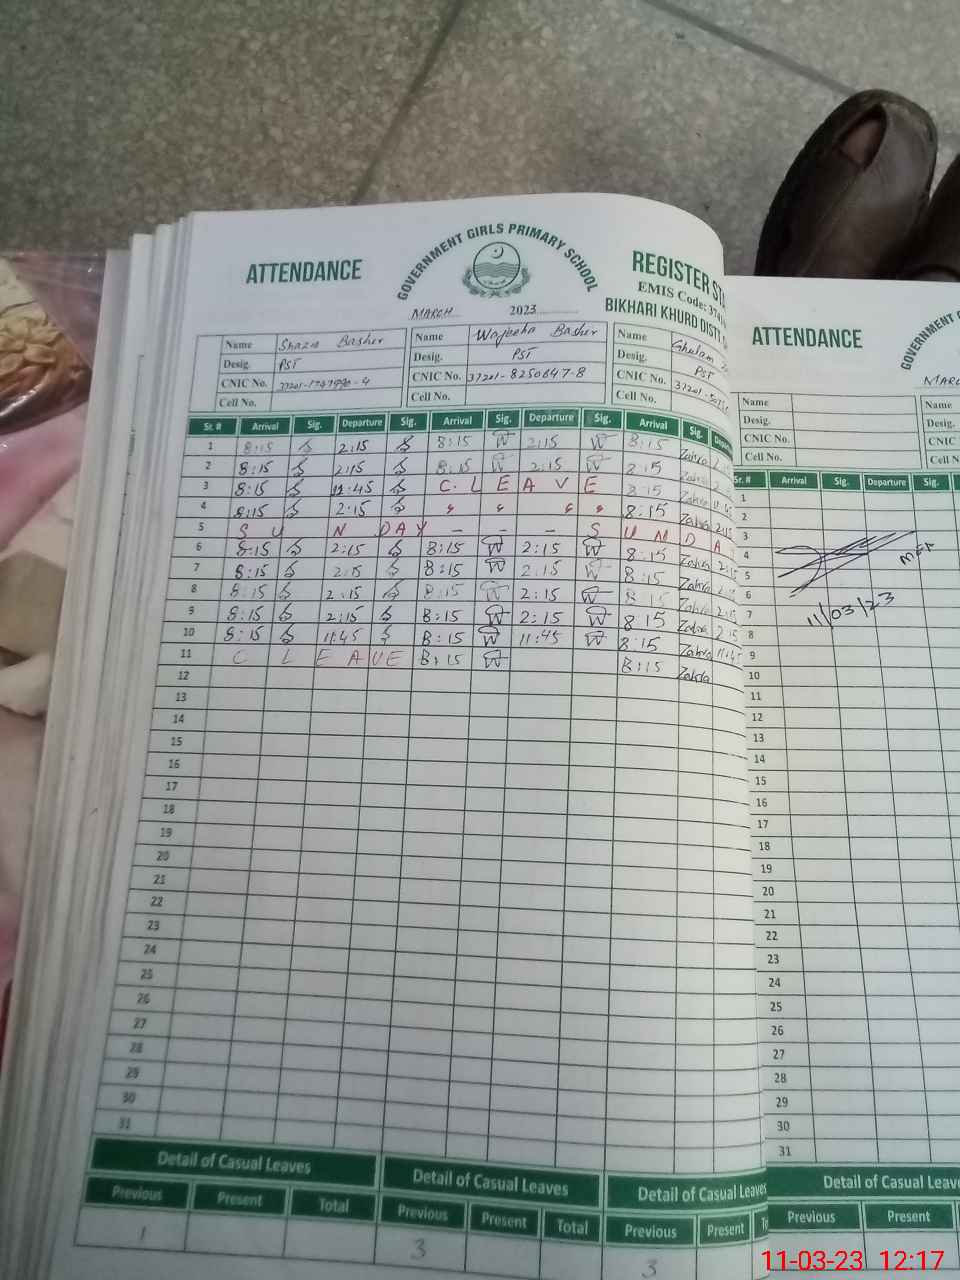 ATTENDANCE
GOVERNMENT GIRLS PRIMARY SCHOOL
REGISTER
EMIS Code:
BIKHARI KHURD
MARCH 2023
Name Shazia Basher Name Wajeeha Basher Name Ghulam
Desig. PST Desig. PST Desig. PST
CNIC No. CNIC No. 37201-8250647-8 CNIC No.
Cell No. Cell No. Cell No.
Sr. # Arrival Sig. Departure Sig. Arrival Sig. Departure Sig. Arrival Sig.
1 8:15 2:15 8:15 2:15 8:15 Zahra
2 8:15 2:15 8:15 2:15 8:15 Zahra
3 8:15 11:45 C. L E A V E 8:15 Zahra
4 8:15 2:15 8:15 Zahra 2:15
5 S U N DAY - - - S U N D A
6 8:15 2:15 8:15 2:15 8:15 Zahra 2:15
7 8:15 2:15 8:15 2:15 8:15 Zahra
8 8:15 2:15 8:15 2:15 8:15 Zahra 2:15
9 8:15 2:15 8:15 2:15 8:15 Zahra 2:15
10 8:15 11:45 8:15 11:45 8:15 Zahra 11:45
11 C L E A V E 8:15 8:15 Zahra
12
13
14
15
16
17
18
19
20
21
22
23
24
25
26
27
28
29
30
31
Detail of Casual Leaves Detail of Casual Leaves Detail of Casual Leaves
Previous Present Total Previous Present Total Previous Present
1 3 3
ATTENDANCE
GOVERNMENT
MARC
Name Name
Desig. Desig.
CNIC No. CNIC
Cell No. Cell N
Sr. # Arrival Sig. Departure Sig.
1
2
3
4
5
6
7
8
9
10
11
12
13
14
15
16
17
18
19
20
21
22
23
24
25
26
27
28
29
30
31
MEA
11/03/23
Detail of Casual Leave
Previous Present
11-03-23 12:17